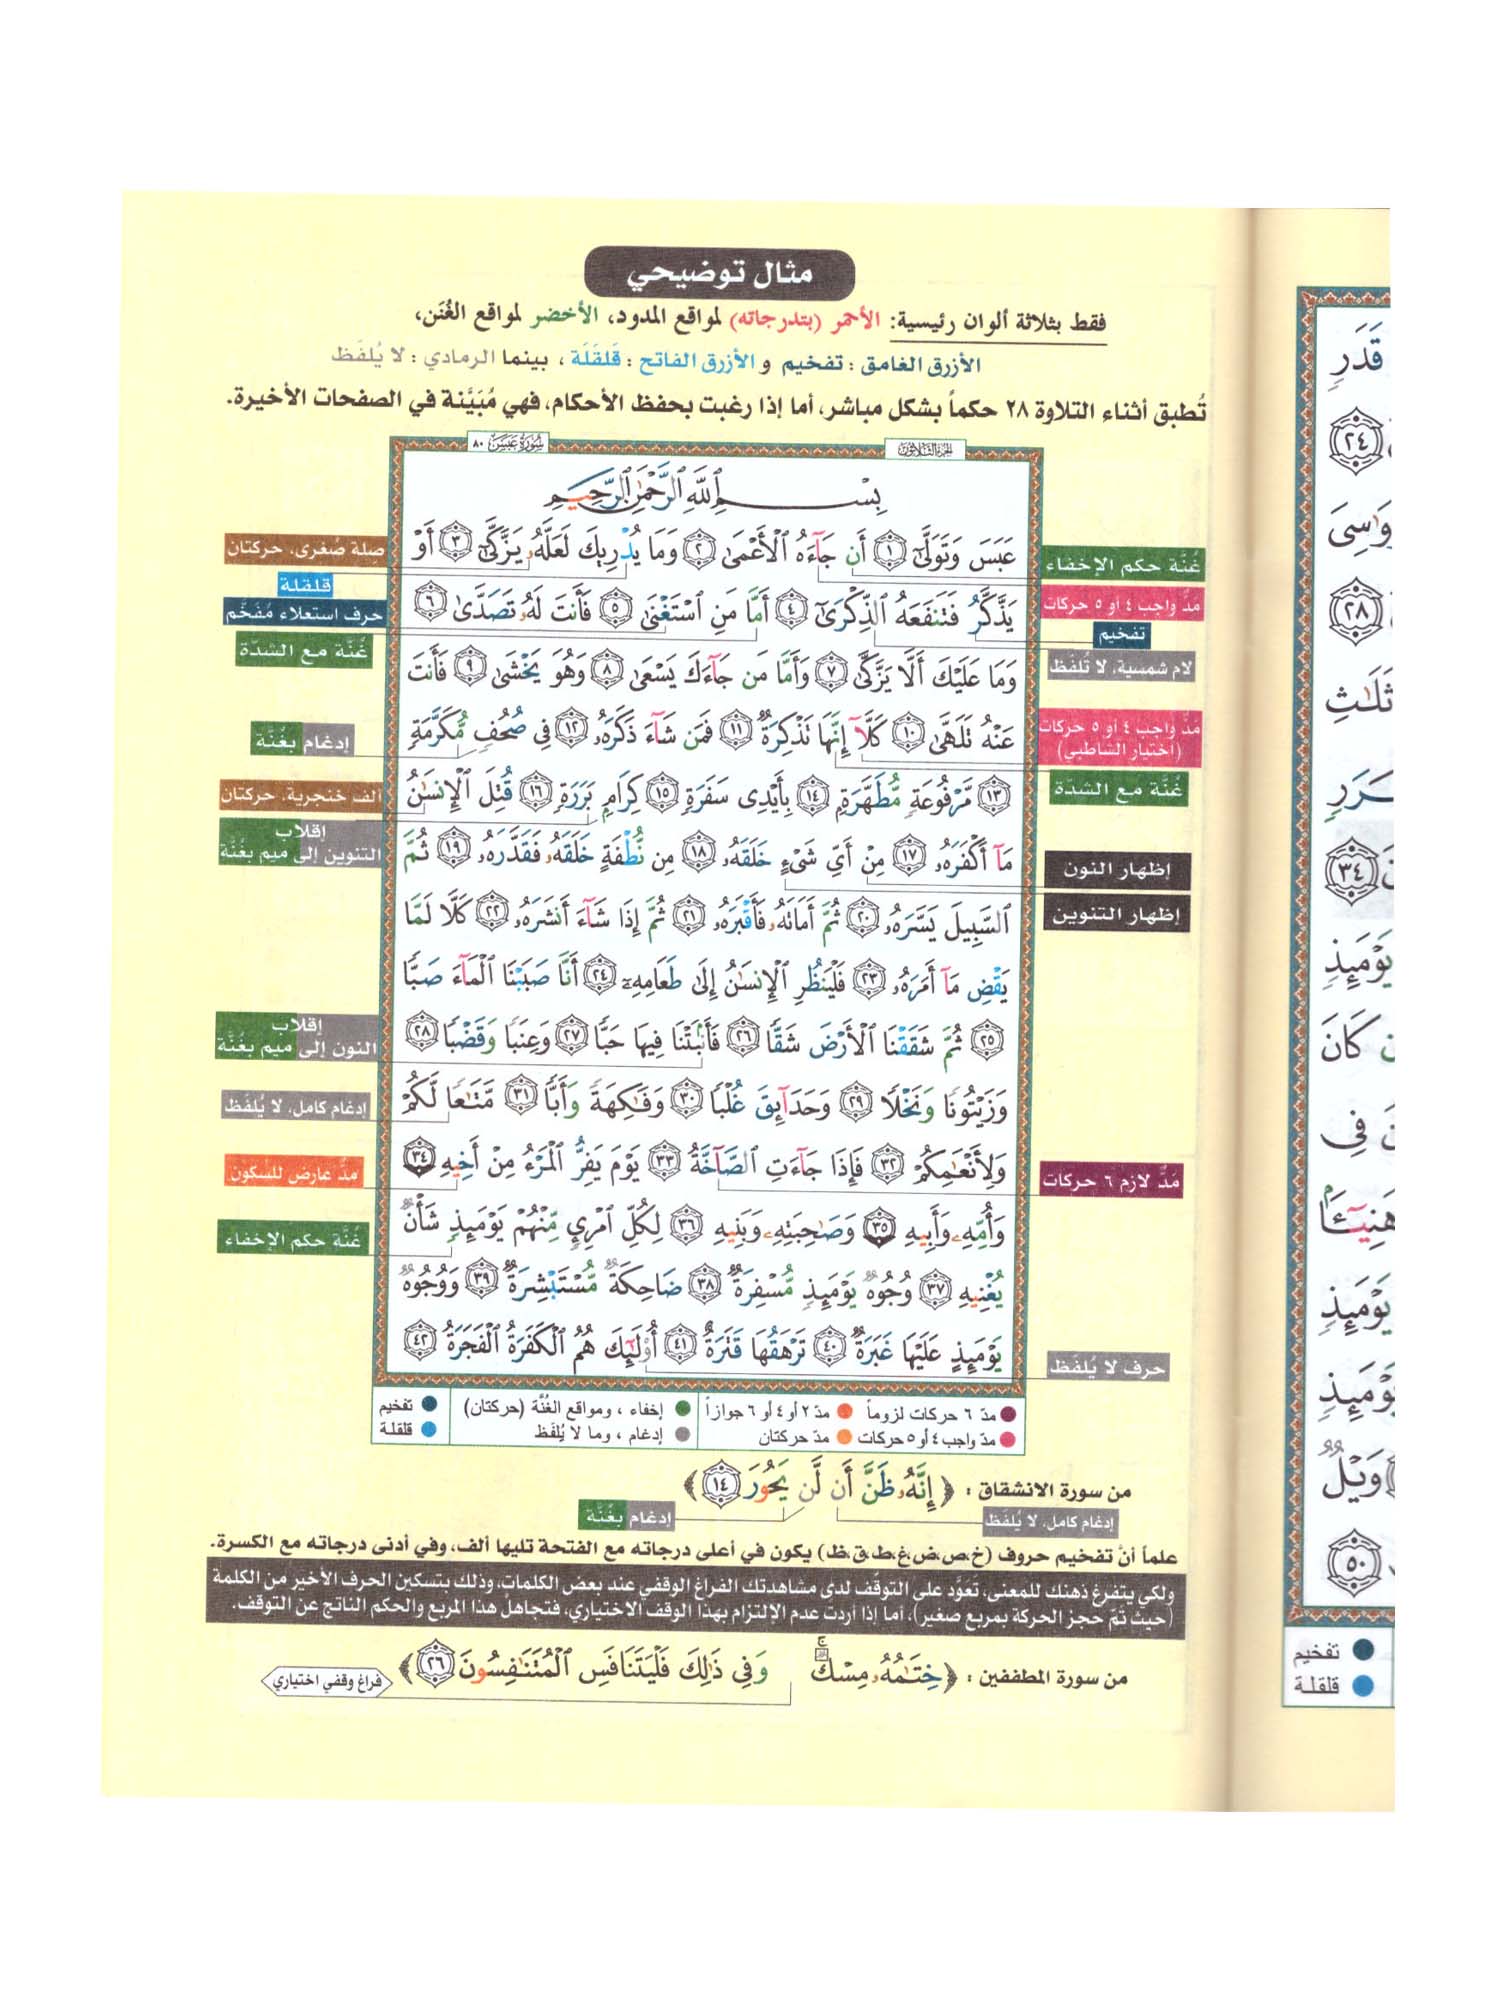 مثال توضيحي
فقط بثلاثة ألوان رئيسية: الأحمر (بتدرجاته) لمواقع المدود، الأخضر لمواقع الغُنَن،
الأزرق الغامق : تفخيم و الأزرق الفاتح : قَلقَلَة ، بينما الرمادي : لا يُلفَظ
تُطبق أثناء التلاوة ٢٨ حكماً بشكل مباشر، أما إذا رغبت بحفظ الأحكام، فهي مُبَيَّنة في الصفحات الأخيرة.
الجزء الثلاثون
سورة عبس ٨٠
بِسْمِ ٱللَّهِ ٱلرَّحْمَٰنِ ٱلرَّحِيمِ
عَبَسَ وَتَوَلَّىٰٓ ١ أَن جَآءَهُ ٱلْأَعْمَىٰ ٢ وَمَا يُدْرِيكَ لَعَلَّهُۥ يَزَّكَّىٰٓ ٣ أَوْ
يَذَّكَّرُ فَتَنفَعَهُ ٱلذِّكْرَىٰٓ ٤ أَمَّا مَنِ ٱسْتَغْنَىٰ ٥ فَأَنتَ لَهُۥ تَصَدَّىٰ ٦
وَمَا عَلَيْكَ أَلَّا يَزَّكَّىٰ ٧ وَأَمَّا مَن جَآءَكَ يَسْعَىٰ ٨ وَهُوَ يَخْشَىٰ ٩ فَأَنتَ
عَنْهُ تَلَهَّىٰ ١٠ كَلَّآ إِنَّهَا تَذْكِرَةٌ ١١ فَمَن شَآءَ ذَكَرَهُۥ ١٢ فِى صُحُفٍ مُّكَرَّمَةٍ
١٣ مَّرْفُوعَةٍ مُّطَهَّرَةٍۭ ١٤ بِأَيْدِى سَفَرَةٍ ١٥ كِرَامٍۭ بَرَرَةٍ ١٦ قُتِلَ ٱلْإِنسَٰنُ
مَآ أَكْفَرَهُۥ ١٧ مِنْ أَىِّ شَىْءٍ خَلَقَهُۥ ١٨ مِن نُّطْفَةٍ خَلَقَهُۥ فَقَدَّرَهُۥ ١٩ ثُمَّ
ٱلسَّبِيلَ يَسَّرَهُۥ ٢٠ ثُمَّ أَمَاتَهُۥ فَأَقْبَرَهُۥ ٢١ ثُمَّ إِذَا شَآءَ أَنشَرَهُۥ ٢٢ كَلَّا لَمَّا
يَقْضِ مَآ أَمَرَهُۥ ٢٣ فَلْيَنظُرِ ٱلْإِنسَٰنُ إِلَىٰ طَعَامِهِۦٓ ٢٤ أَنَّا صَبَبْنَا ٱلْمَآءَ صَبًّا
٢٥ ثُمَّ شَقَقْنَا ٱلْأَرْضَ شَقًّا ٢٦ فَأَنۢبَتْنَا فِيهَا حَبًّا ٢٧ وَعِنَبًا وَقَضْبًا ٢٨
وَزَيْتُونًا وَنَخْلًا ٢٩ وَحَدَآئِقَ غُلْبًا ٣٠ وَفَٰكِهَةً وَأَبًّا ٣١ مَّتَٰعًا لَّكُمْ
وَلِأَنْعَٰمِكُمْ ٣٢ فَإِذَا جَآءَتِ ٱلصَّآخَّةُ ٣٣ يَوْمَ يَفِرُّ ٱلْمَرْءُ مِنْ أَخِيهِ ٣٤
وَأُمِّهِۦ وَأَبِيهِ ٣٥ وَصَٰحِبَتِهِۦ وَبَنِيهِ ٣٦ لِكُلِّ ٱمْرِئٍ مِّنْهُمْ يَوْمَئِذٍ شَأْنٌ
يُغْنِيهِ ٣٧ وُجُوهٌ يَوْمَئِذٍ مُّسْفِرَةٌ ٣٨ ضَاحِكَةٌ مُّسْتَبْشِرَةٌ ٣٩ وَوُجُوهٌ
يَوْمَئِذٍ عَلَيْهَا غَبَرَةٌ ٤٠ تَرْهَقُهَا قَتَرَةٌ ٤١ أُو۟لَٰٓئِكَ هُمُ ٱلْكَفَرَةُ ٱلْفَجَرَةُ ٤٢
غُنَّة حكم الإخفاء
مدّ واجب ٤ أو ٥ حركات
تفخيم
لام شمسية، لا تُلفَظ
مدّ واجب ٤ أو ٥ حركات
(اختيار الشاطبي)
غُنَّة مع الشدّة
إظهار النون
إظهار التنوين
مَدّ لازم ٦ حركات
حرف لا يُلفَظ
صِلة صُغرى، حركتان
قلقلة
حرف استعلاء مُفَخَّم
غُنَّة مع الشدّة
إدغام بغُنَّة
ألف خنجرية، حركتان
إقلاب
التنوين إلى ميم بغُنَّة
إقلاب
النون إلى ميم بغُنَّة
إدغام كامل، لا يُلفَظ
مدّ عارض للسكون
غُنَّة حكم الإخفاء
مدّ ٦ حركات لزوماً مدّ ٢ أو ٤ أو ٦ جوازاً إخفاء ، ومواقع الغُنَّة (حركتان) تفخيم
مدّ واجب ٤ أو ٥ حركات مدّ حركتان إدغام ، وما لا يُلفَظ قلقلة
من سورة الانشقاق : ﴿ إِنَّهُۥ ظَنَّ أَن لَّن يَحُورَ ١٤ ﴾
إدغام كامل، لا يُلفَظ
إدغام بغُنَّة
علماً أنَّ تفخيم حروف (خ،ص،ض،غ،ط،ق،ظ) يكون في أعلى درجاته مع الفتحة تليها ألف، وفي أدنى درجاته مع الكسرة.
ولكي يتفرغ ذهنك للمعنى، تَعَوَّد على التوقّف لدى مشاهدتك الفراغ الوقفي عند بعض الكلمات، وذلك بتسكين الحرف الأخير من الكلمة
(حيث تمّ حجز الحركة بمربع صغير)، أما إذا أردت عدم الإلتزام بهذا الوقف الاختياري، فتجاهلْ هذا المربع والحكم الناتج عن التوقف.
من سورة المطففين : ﴿ خِتَٰمُهُۥ مِسْكٌ ۚ وَفِى ذَٰلِكَ فَلْيَتَنَافَسِ ٱلْمُتَنَٰفِسُونَ ٢٦ ﴾
فراغ وقفي اختياري
قَدَرٍ
٢٤
وَٰسِىَ
٢٨
ثَلَٰثِ
٣٤
يَوْمَئِذٍ
كَانَ
فِى
هَنِيٓـًٔا
يَوْمَئِذٍ
يَوْمَئِذٍ
وَيْلٌ
٥٠
تفخيم
قلقلة